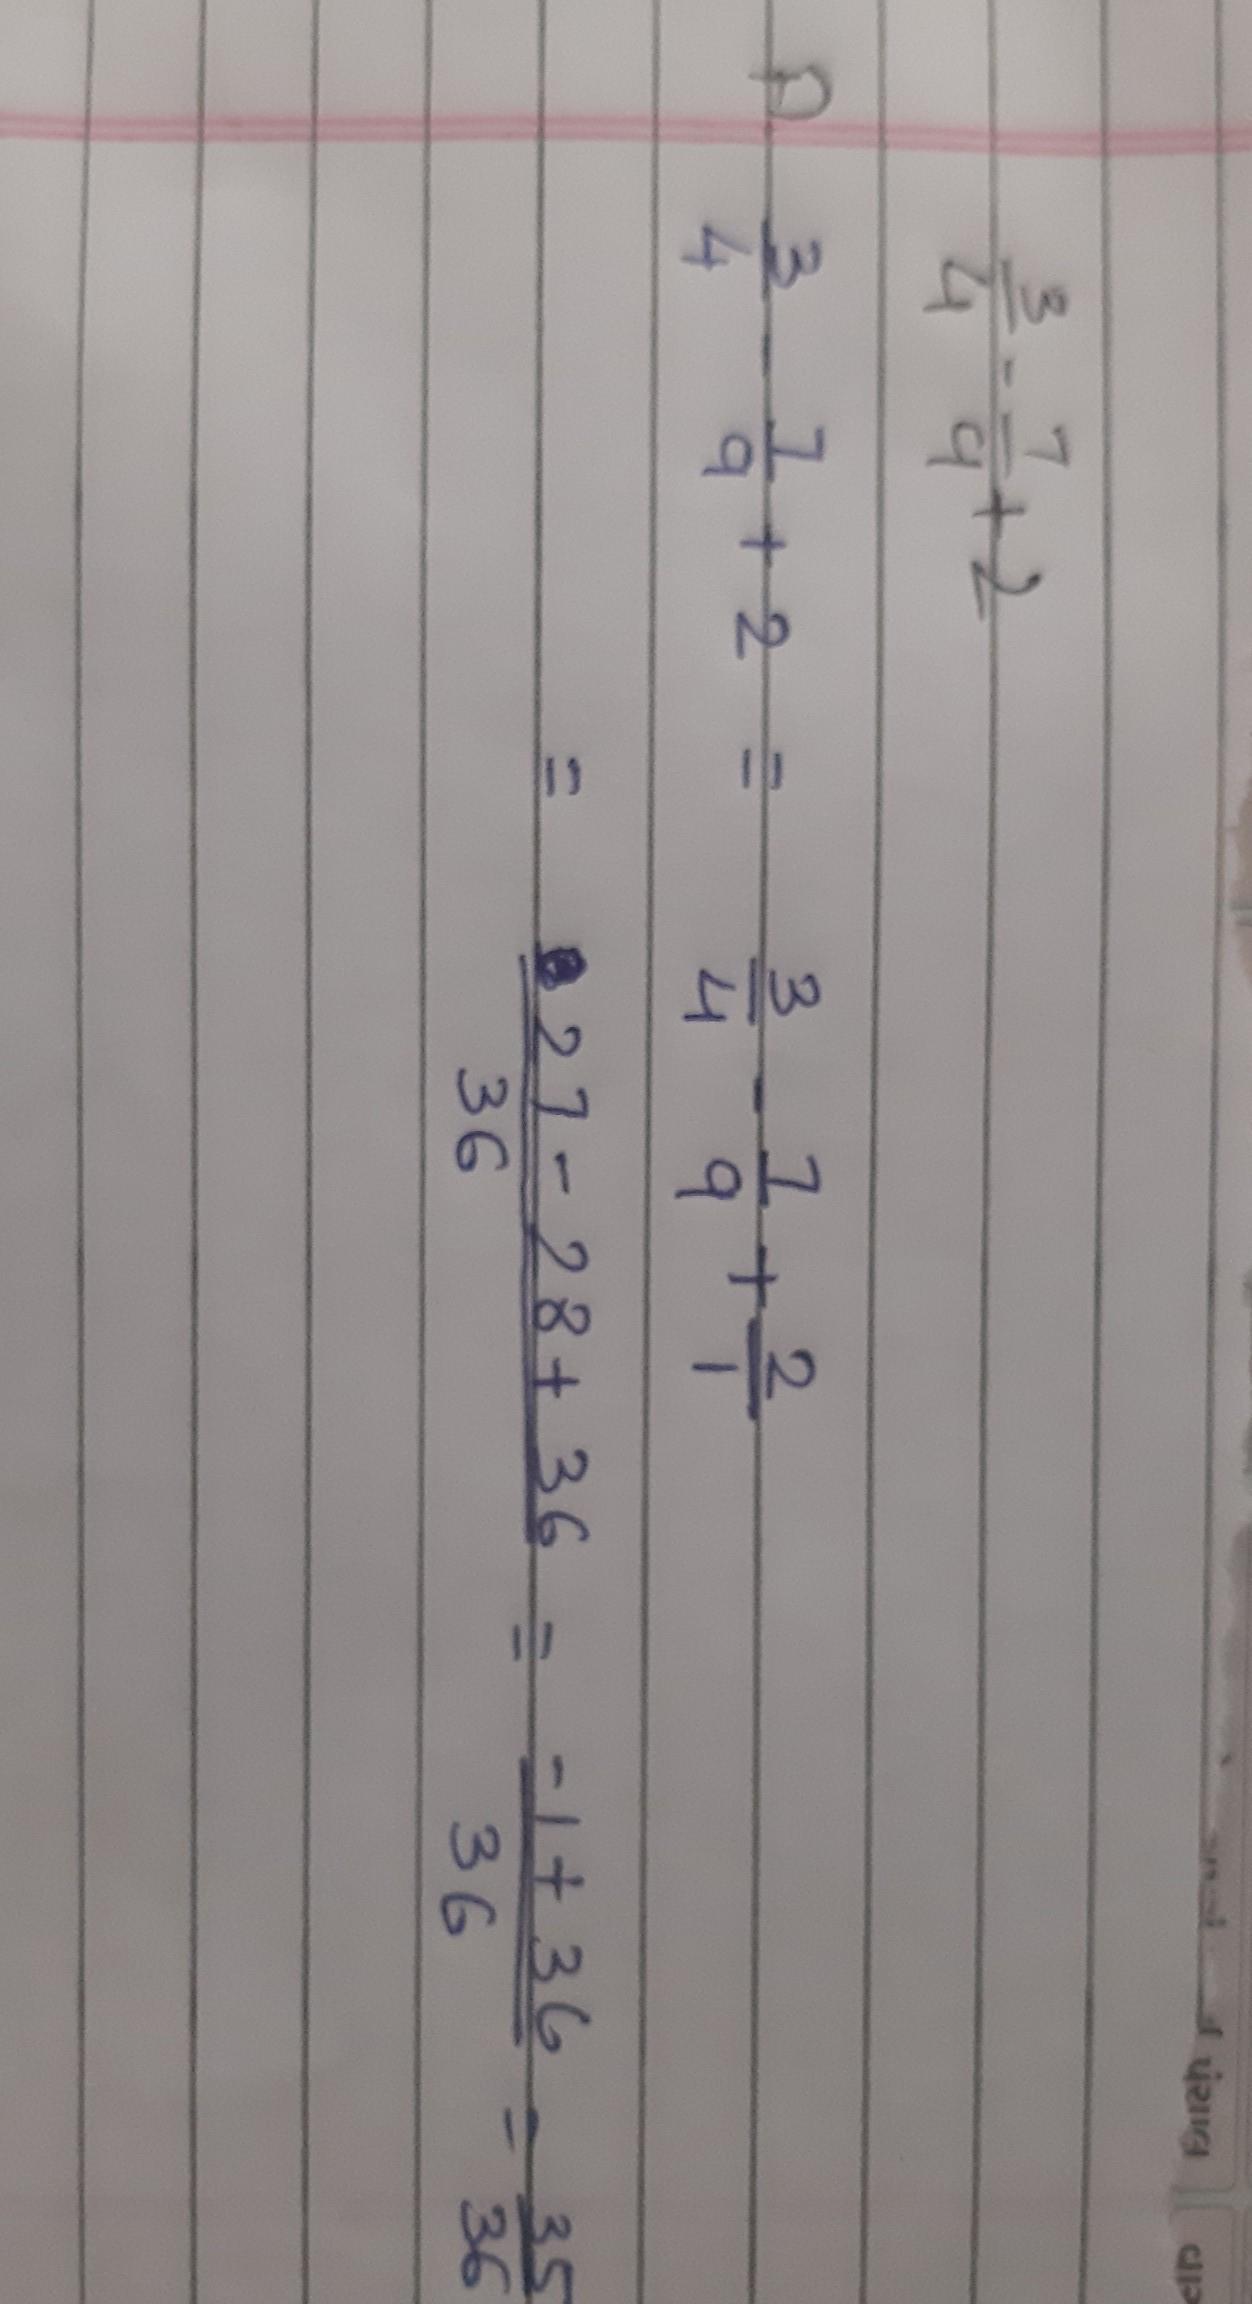 3/4 - 7/9 + 2
A 3/4 - 7/9 + 2 = 3/4 - 7/9 + 2/1
= (27 - 28 + 36)/36 = (-1 + 36)/36 = 35/36